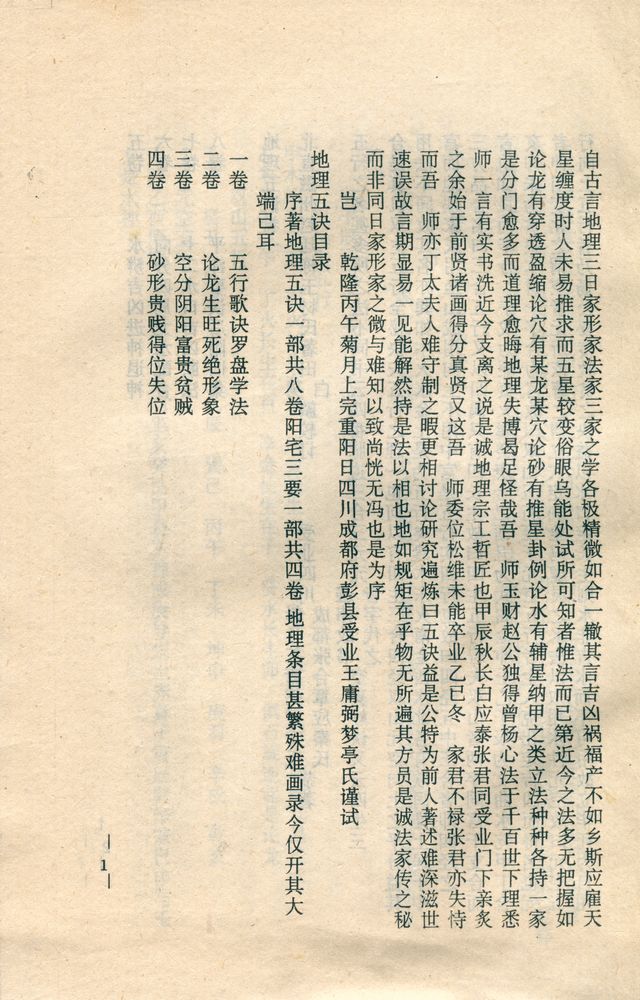 自古言地理三日家形家法家三家之学各极精微如合一辙其言吉凶祸福产不如乡斯应雇天
星缠度时人未易推求而五星较变俗眼乌能处试所可知者惟法而已第近今之法多无把握如
论龙有穿透盈缩论穴有某龙某穴论砂有推星卦例论水有辅星纳甲之类立法种种各持一家
是分门愈多而道理愈晦地理失博曷足怪哉吾　师玉财赵公独得曾杨心法于千百世下理悉
师一言有实书洗近今支离之说是诚地理宗工哲匠也甲辰秋长白应泰张君同受业门下亲炙
之余始于前贤诸画得分真贤又这吾　师委位松维未能卒业乙已冬　家君不禄张君亦失恃
而吾　师亦丁太夫人难守制之暇更相讨论研究遍炼曰五诀益是公特为前人著述难深滋世
速误故言期显易一见能解然持是法以相也地如规矩在乎物无所遍其方员是诚法家传之秘
而非同日家形家之微与难知以致尚恍无冯也是为序
岂　乾隆丙午菊月上完重阳日四川成都府彭县受业王庸弼梦亭氏谨试
地理五诀目录
序著地理五诀一部共八卷阳宅三要一部共四卷 地理条目甚繁殊难画录今仅开其大
端己耳
一卷　五行歌诀罗盘学法
二卷　论龙生旺死绝形象
三卷　空分阴阳富贵贫贱
四卷　砂形贵贱得位失位
1